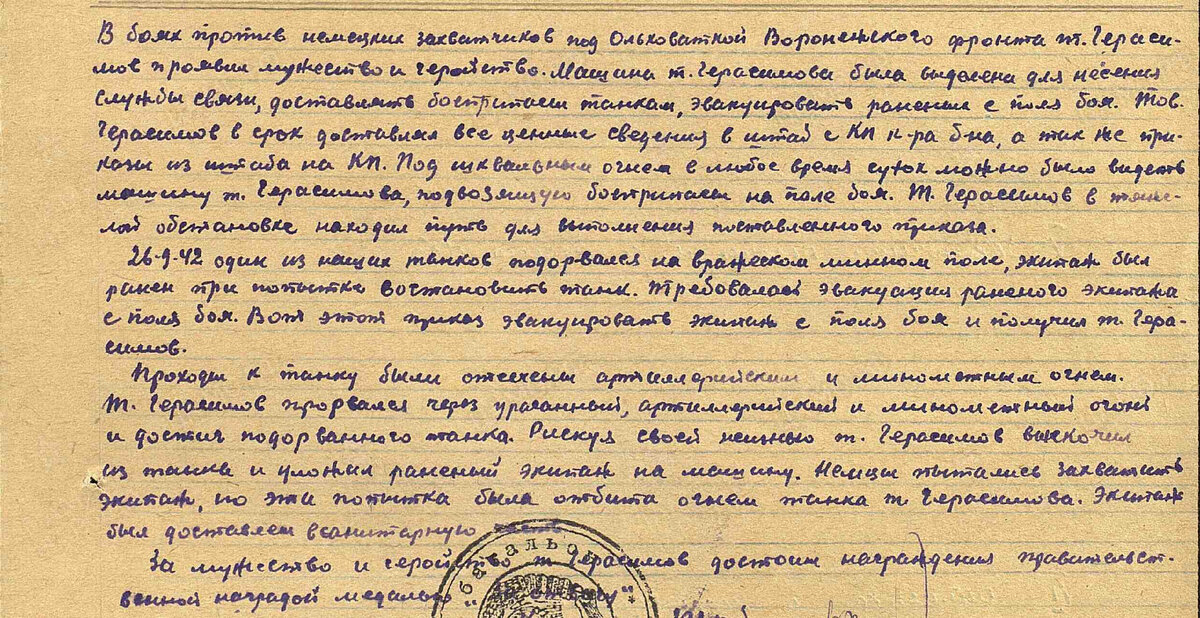 В боях против немецких захватчиков под Ольховаткой Воронежского фронта т. Гераси-
мов проявил мужество и геройство. Машина т. Герасимова была выделена для несения
службы связи, доставлять боеприпасы танкам, эвакуировать раненых с поля боя. Тов.
Герасимов в срок доставлял все ценные сведения в штаб с КП к-ра б-на, а так же при-
казы из штаба на КП. Под шквальным огнем в любое время суток можно было видеть
машину т. Герасимова, подвозящую боеприпасы на поле боя. Т. Герасимов в тяже-
лой обстановке находил путь для выполнения поставленного приказа.
26-9-42 один из наших танков подорвался на вражеском минном поле, экипаж был
ранен при попытке востановить танк. Требовалась эвакуация раненого экипажа
с поля боя. Вот этот приказ эвакуировать экипаж с поля боя и получил т. Гера-
симов.
Проходы к танку были отсечены артиллерийским и минометным огнем.
Т. Герасимов прорвался через ураганный, артиллерийский и минометный огонь
и достич подорванного танка. Рискуя своей жизнью т. Герасимов выскочил
из танка и уложил раненый экипаж на машину. Немцы пытались захватить
экипаж, но эта попытка была отбита огнем танка т. Герасимова. Экипаж
был доставлен в санитарную часть.
За мужество и геройство т. Герасимов достоин награждения правительст-
венной наградой медалью "За отвагу"